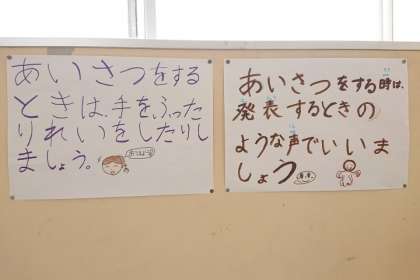 あいさつをする
ときは、手を、ふった
りれいをしたりし
ましょう。
おはよう
あいさつをする時は、
発表するときの
ような声でいいま
しょう